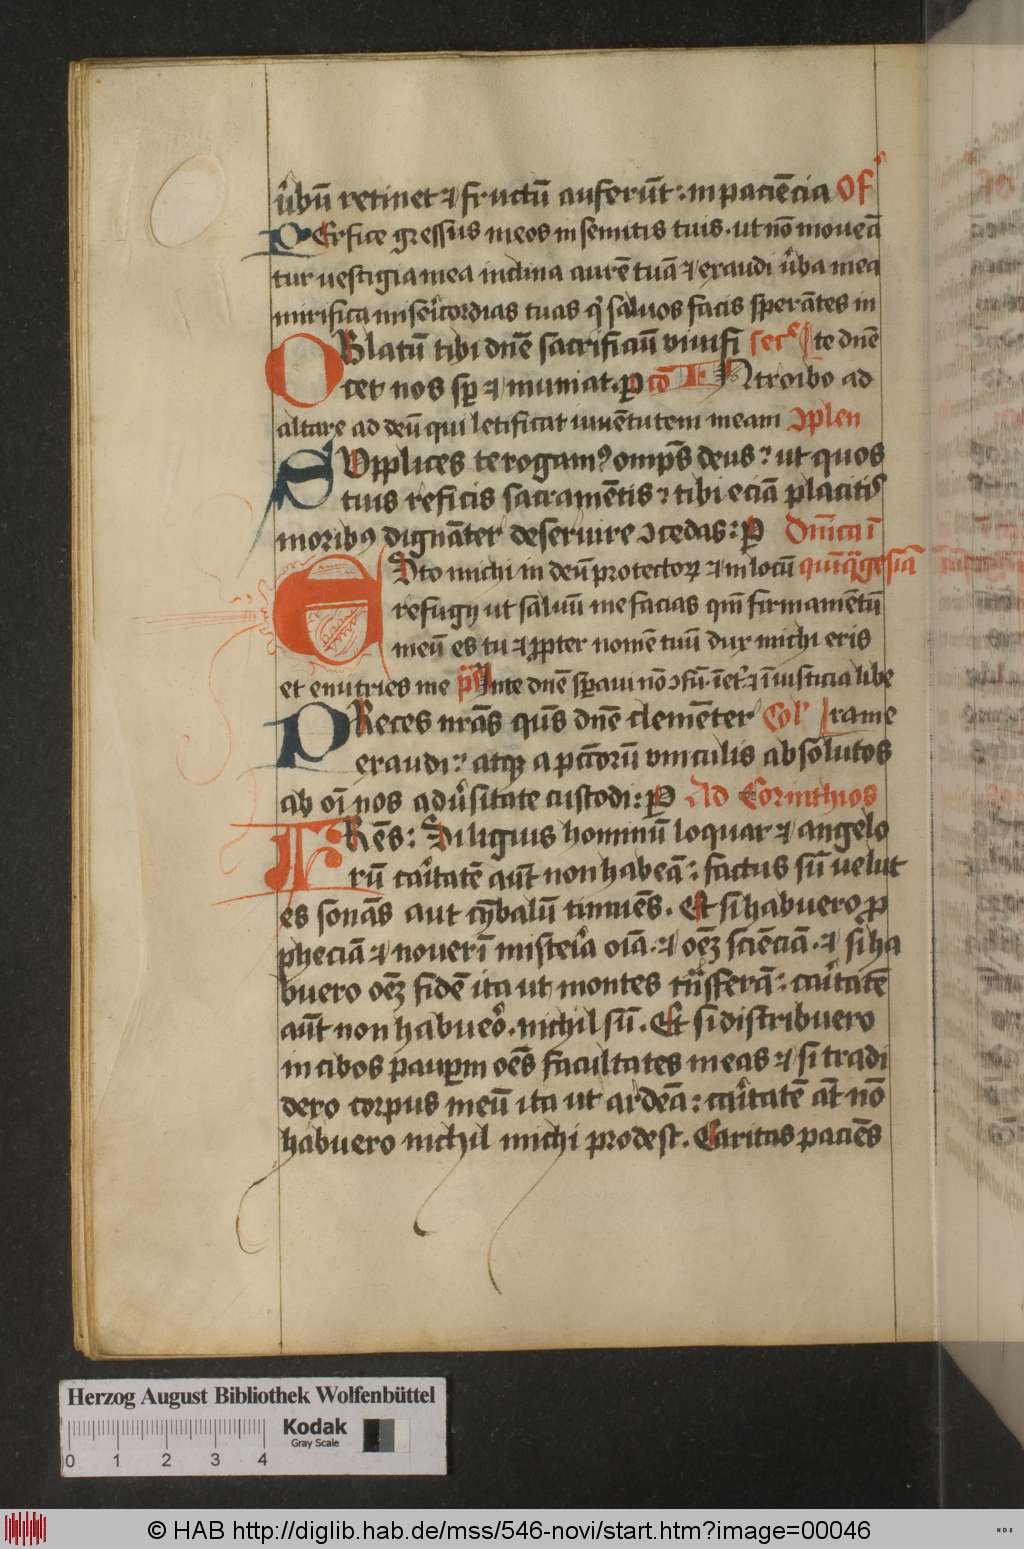 v̉bū retinet ⁊ fructū aufer̄ut : in paciēcia Of
PErfice gressus meos in semitis tuis . ut nō moueā
tur uestigia mea inclina aurē tuā ⁊ exaudi v̉ba mea
mirifica miser̉icordias tuas q̉ saluos facis sperātes in
OBlatū tibi dnē sacrificiū viuifi secᵉ te dnē
cet nos sp̄ ⁊ muniat . p̄ cō INtroibo ad
altare ad deū qui letificat iuuētutem meam ɔplen
SUpplices te rogamꝰ omps̄ deus : ut quos
tuis reficis sacramētis : tibi eciā placitis
moribꝰ dignāter deseruire ɔcedas : p̄ Dn̄ica ī
ESto michi in deū protectorꝫ ⁊ in locū quīq̄gesīa
refugij ut saluū me facias qm̄ firmamētū
meū es tu ⁊ ꝓpter nomē tuū dux michi eris
et enutries me p̄s In te dnē sꝑaui nō ɔfū . ī et̉ ⁊ ī iusticia libe
PReces nrās qs̄ dnē clemēter Col̓ ra me
exaudi : atqꝫ a pctōrū vinculis absolutos
ab oī nos adv̉sitate custodi : p̄ Ad Corinthios
FRēs : Si liguis hominū loquar ⁊ angelo
rū car̉itatē aūt non habeā : factus sū velut
es sonās aut cȳbalū tinniēs . Et si habuero ꝓ
pheciā ⁊ nouerī mister̉ia oīa . ⁊ oēꝫ sciēciā . ⁊ si ha
buero oēꝫ fidē ita ut montes trāsferā : car̉itatē
aūt non habuer̉o . nichil sū . Et si distribuero
in cibos pauꝑum oēs facultates meas ⁊ si tradi
dero corpus meū ita ut ardeā : car̉itatē āt nō
habuero nichil michi prodest . Caritas paciēs
Herzog August Bibliothek Wolfenbüttel
Kodak
Gray Scale
0 1 2 3 4
© HAB http://diglib.hab.de/mss/546-novi/start.htm?image=00046